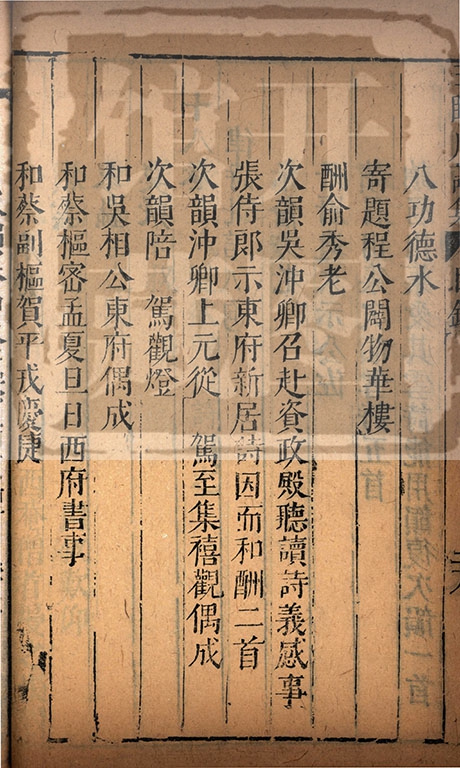 八功德水
寄題程公闢物華樓
酬俞秀老
次韻吳沖卿召赴資政殿聽讀詩義感事
張侍郎示東府新居詩因而和酬二首
次韻沖卿上元從　駕至集禧觀偶成
次韻陪　駕觀燈
和吳相公東府偶成
和蔡樞密孟夏旦日西府書事
和蔡副樞賀平戎慶捷